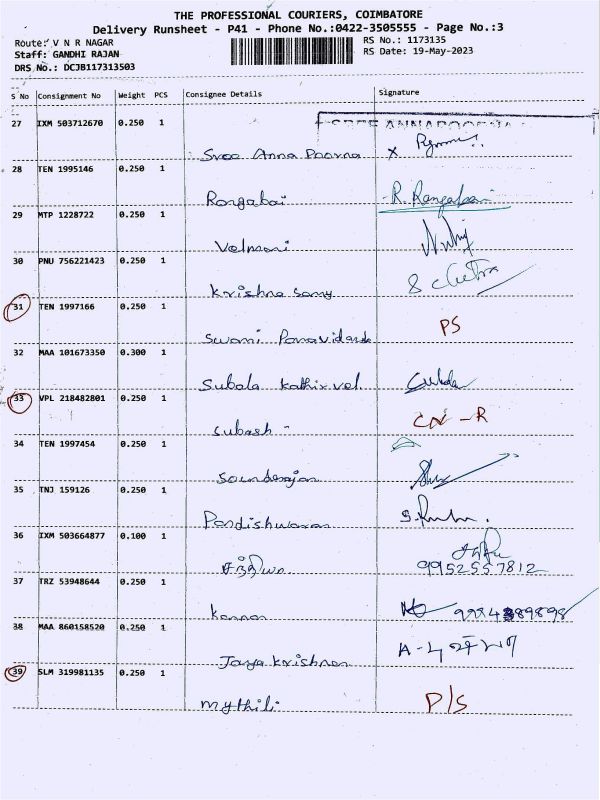 THE PROFESSIONAL COURIERS, COIMBATORE
Delivery Runsheet - P41 - Phone No.:0422-3505555 - Page No.:3
Route: V N R NAGAR RS No.: 1173135
Staff: GANDHI RAJAN RS Date: 19-May-2023
DRS No.: DCJB117313503
S No Consignment No Weight PCS Consignee Details Signature
27 IXM 503712670 0.250 1
SREE ANNAPOORNA
Sree Anna Poorna X
28 TEN 1995146 0.250 1
Rangabai R. Rangabai
29 MTP 1228722 0.250 1
Velmani
30 PNU 756221423 0.250 1
Krishna Samy
31 TEN 1997166 0.250 1
Swami PS
32 MAA 101673350 0.300 1
Subala Kathirvel
33 VPL 218482801 0.250 1
Subash - CN - R
34 TEN 1997454 0.250 1
Sounderajan
35 TNJ 159126 0.250 1
Pandishwaran
36 IXM 503664877 0.100 1
9952557812
37 TRZ 53948644 0.250 1
Kannan
38 MAA 860158520 0.250 1
Jaya Krishnan
39 SLM 319981135 0.250 1
Mythili P/S